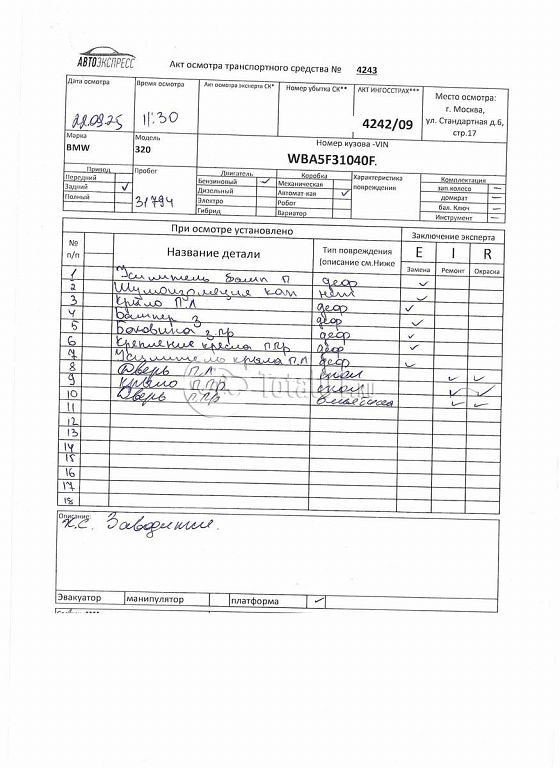 АВТОЭКСПРЕСС
Акт осмотра транспортного средства № 4243
Дата осмотра
22.09.25
Время осмотра
11:30
Акт осмотра эксперта СК*
Номер убытка СК**
АКТ ИНГОССТРАХ***
4242/09
Место осмотра:
г. Москва,
ул. Стандартная д.6,
стр.17
Марка
BMW
Модель
320
Номер кузова -VIN
WBA5F31040F.
Привод
Передний
Задний ✓
Полный
Пробег
31794
Двигатель
Бензиновый ✓
Дизельный
Электро
Гибрид
Коробка
Механическая
Автомат-кая ✓
Робот
Вариатор
Характеристика
повреждения
Комплектация
зап.колесо —
домкрат —
бал. Ключ —
Инструмент —
При осмотре установлено
Заключение эксперта
№
п/п
Название детали
Тип повреждения
(описание см.Ниже
E I R
Замена Ремонт Окраска
1 Усилитель бамп П деф ✓
2 Шумоизоляция кап нет ✓
3 Крыло П Л деф ✓
4 Бампер З деф ✓
5 Боковина З.ПР деф ✓
6 Крепление крыла ППР деф ✓
7 Усилитель крыла П.Л деф ✓
8 Дверь П.Л скол ✓ ✓
9 Крыло ППР скол ✓ ✓
10 Дверь ППР вмятина ✓ ✓
11
12
13
14
15
16
17
18
Total
Описание:
Х.С. Заводится.
Эвакуатор манипулятор платформа ✓